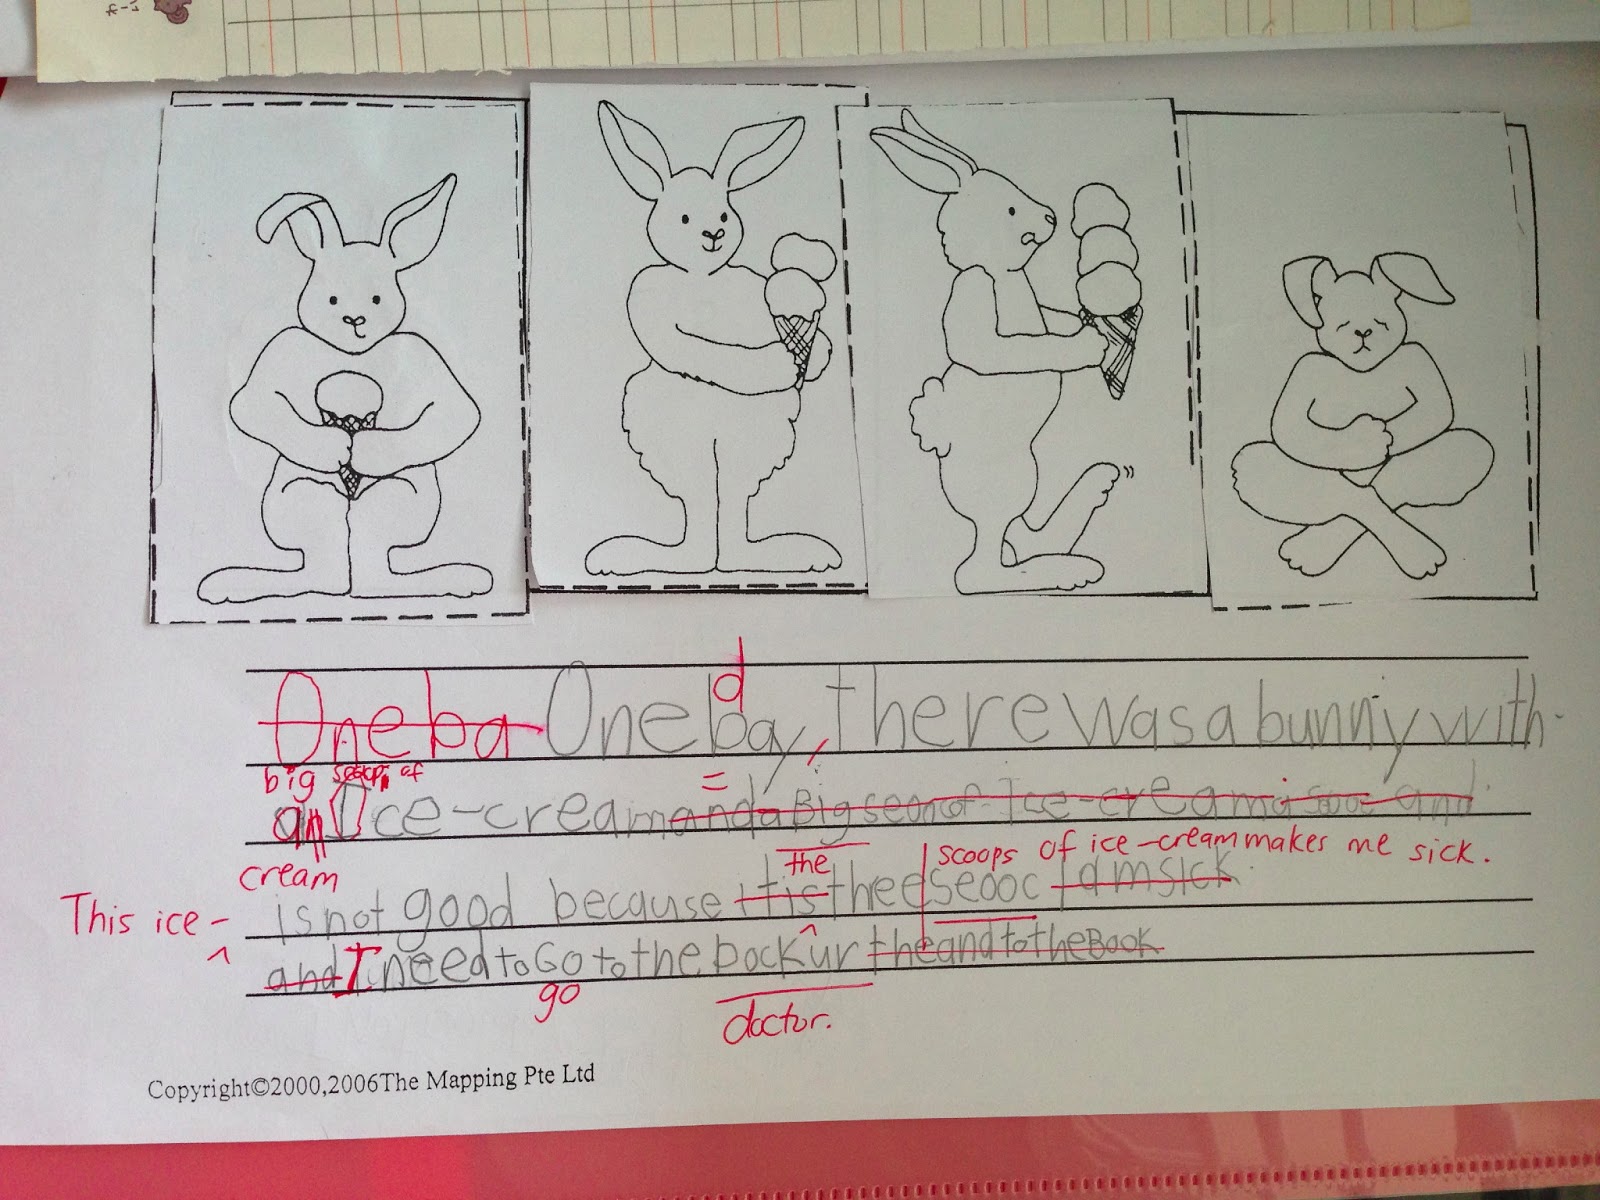 One ba One bay, there was a bunny with
d
big scoops of
an Ice-cream and a Big seon of Ice-cream a sooc and
the
scoops of ice-cream makes me sick.
cream
This ice-
is not good because it is threeseooc I am sick.
and I need to Go to the bockur the and to the Book
go
doctor.
Copyright©2000,2006The Mapping Pte Ltd